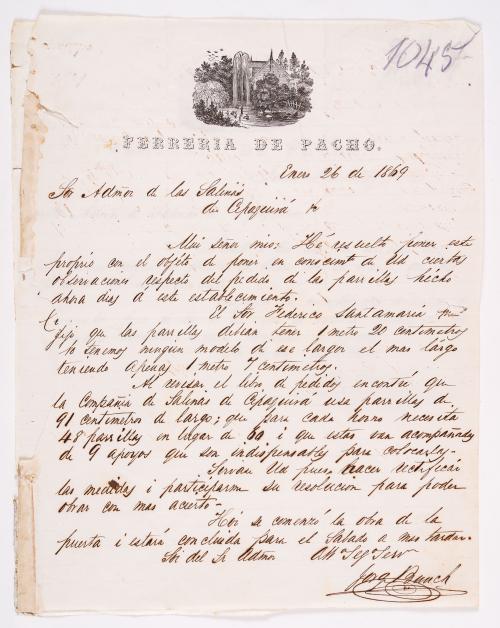 1045
FERRERIA DE PACHO.
Enero 26 de 1869
Sor Admor de las Salinas
de Cipaquirá
Mui señor mio: Hé resuelto poner este
proprio con el objeto de poner en conocimto de Ud ciertas
observaciones respecto del pedido de las parrillas hecho
ahora dias a este establecimento.
El Sor Federico Santamaria
fijó que las parrillas debian tener 1 metro 20 centimetros
No tenemos ningun modelo de ese largor el mas largo
teniendo apenas 1 metro 7 centimetros.
Al revesar el libro de pedidos encontré que
la Compañia de Salinas de Cipaquirá usa parrillas de
91 centimetros de largo; que para cada horno necesita
48 parrillas en lugar de 60 i que estas van acompañadas
de 9 apoyos que son indispensables para colocarlas.
Servase Ud pues hacer rectificar
las medidas i participarme su resolucion para poder
obrar con mas acierto.
Hoi se comenzó la obra de la
puerta i estará concluida para el Sabado a mas tardar.
Soi del Sr Admor Atto Segο Serv
Jorg Bunch